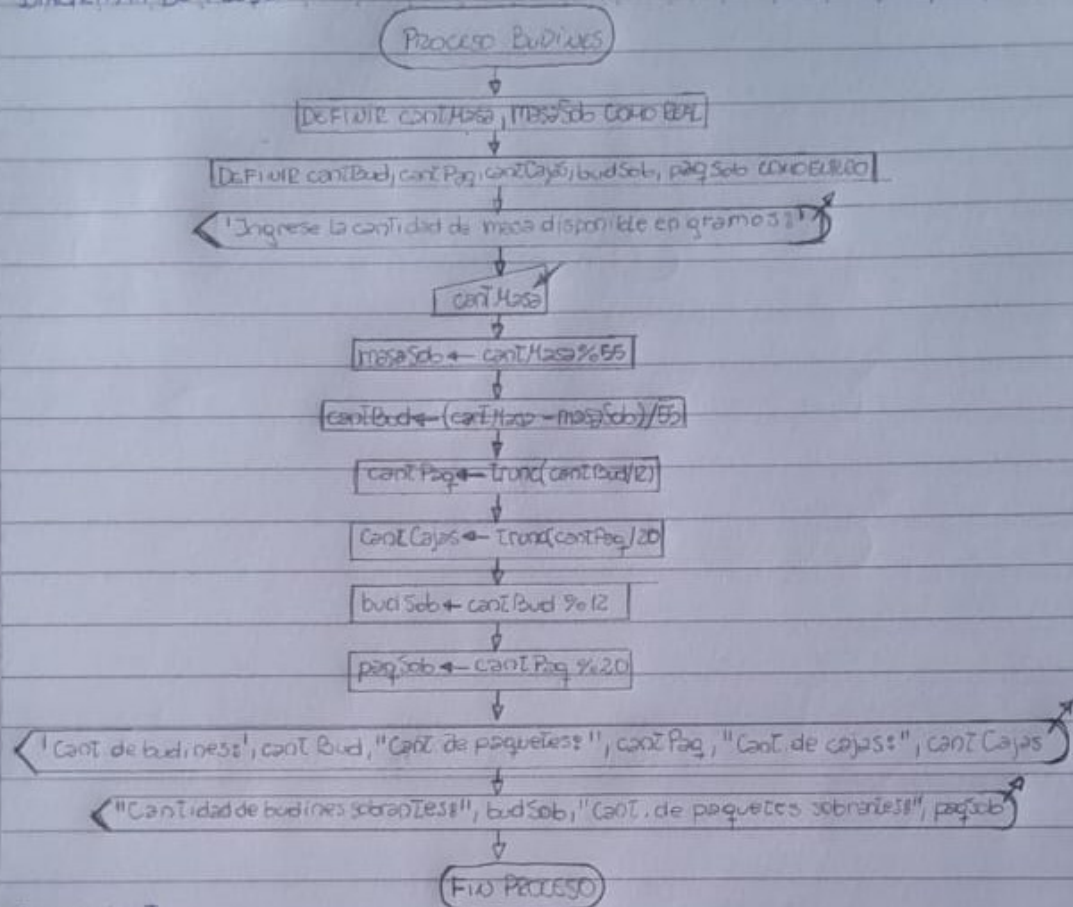 PROCESO BUDINES
DEFINIR cantMasa, masaSob COMO REAL
DEFINIR cantBud, cantPaq, cantCajas, budSob, paqSob COMO
'Ingrese la cantidad de masa disponible en gramos:'
cantMasa
masaSob ← cantMasa % 55
cantBud ← (cantMasa - masaSob)/55
cantPaq ← trunc(cantBud/12)
cantCajas ← trunc(cantPaq/20
budSob ← cantBud % 12
paqSob ← cantPaq % 20
'Cant de budines:', cantBud, "Cant. de paquetes:", cantPaq, "Cant. de cajas:", cantCajas
"Cantidad de budines sobrantes:", budSob, "Cant. de paquetes sobrantes:", paqSob
FIN PROCESO